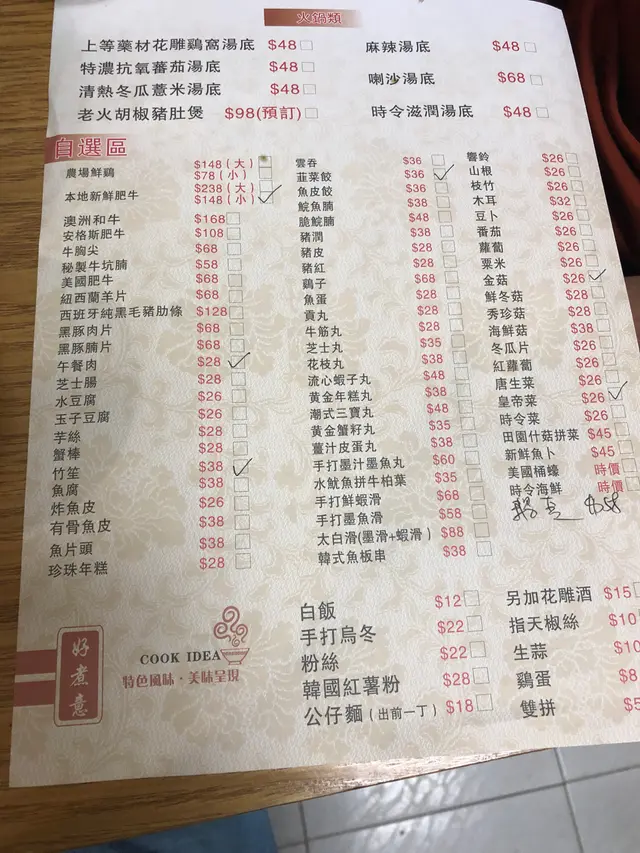 火鍋類
上等藥材花雕鷄窩湯底 $48
特濃抗氧蕃茄湯底 $48
清熱冬瓜薏米湯底 $48
老火胡椒豬肚煲 $98(預訂)
麻辣湯底 $48
喇沙湯底 $68
時令滋潤湯底 $48
自選區
農場鮮鷄 $148(大)
$78(小)
本地新鮮肥牛 $238(大)
$148(小)
澳洲和牛 $168
安格斯肥牛 $108
牛胸尖 $68
秘製牛坑腩 $58
美國肥牛 $68
紐西蘭羊片 $68
西班牙純黑毛豬肋條 $128
黑豚肉片 $68
黑豚腩片 $68
午餐肉 $28
芝士腸 $28
水豆腐 $26
玉子豆腐 $26
芋絲 $28
蟹棒 $28
竹笙 $38
魚腐 $38
炸魚皮 $26
有骨魚皮 $38
魚片頭 $38
珍珠年糕 $28
雲吞 $36
韮菜餃 $36
魚皮餃 $36
鯇魚腩 $38
脆鯇腩 $48
豬潤 $38
豬皮 $28
豬紅 $28
鷄子 $68
魚蛋 $28
貢丸 $28
牛筋丸 $28
芝士丸 $35
花枝丸 $38
流心蝦子丸 $48
黃金年糕丸 $38
潮式三寶丸 $48
黃金蟹籽丸 $35
薑汁皮蛋丸 $38
手打墨汁墨魚丸 $60
水魷魚拼牛柏葉 $35
手打鮮蝦滑 $68
手打墨魚滑 $58
太白滑(墨滑+蝦滑) $88
韓式魚板串 $38
響鈴 $26
山根 $26
枝竹 $26
木耳 $32
豆卜 $26
番茄 $26
蘿蔔 $26
粟米 $26
金菇 $26
鮮冬菇 $28
秀珍菇 $28
海鮮菇 $38
冬瓜片 $26
紅蘿蔔 $26
唐生菜 $26
皇帝菜 $26
時令菜 $26
田園什菇拼菜 $45
新鮮魚卜 $45
美國桶蠔 時價
時令海鮮 時價
$58
白飯 $12
手打烏冬 $22
粉絲 $22
韓國紅薯粉 $28
公仔麵(出前一丁) $18
另加花雕酒 $15
指天椒絲 $10
生蒜 $10
鷄蛋 $8
雙拼
好煮意
COOK IDEA
特色風味・美味呈現